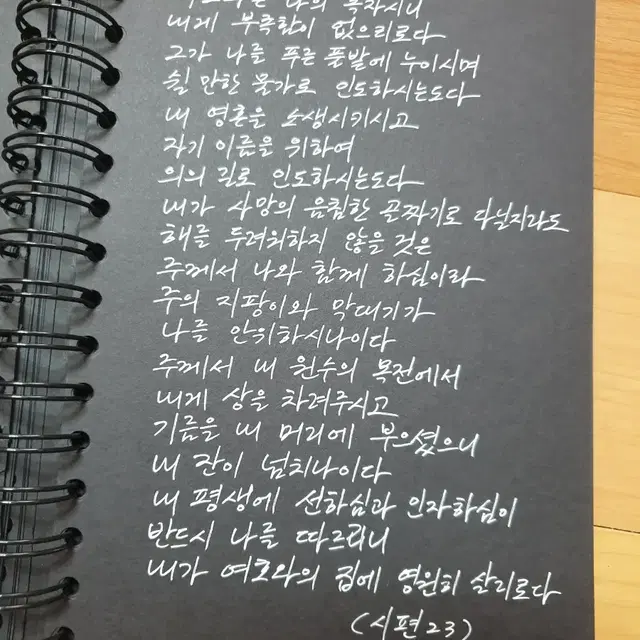 나의 목자시니
내게 부족함이 없으리로다
그가 나를 푸른 풀밭에 누이시며
쉴 만한 물가로 인도하시는도다
내 영혼을 소생시키시고
자기 이름을 위하여
의의 길로 인도하시는도다
내가 사망의 음침한 골짜기로 다닐지라도
해를 두려워하지 않을 것은
주께서 나와 함께 하심이라
주의 지팡이와 막대기가
나를 안위하시나이다
주께서 내 원수의 목전에서
내게 상을 차려주시고
기름을 내 머리에 부으셨으니
내 잔이 넘치나이다
내 평생에 선하심과 인자하심이
반드시 나를 따르리니
내가 여호와의 집에 영원히 살리로다
(시편23)